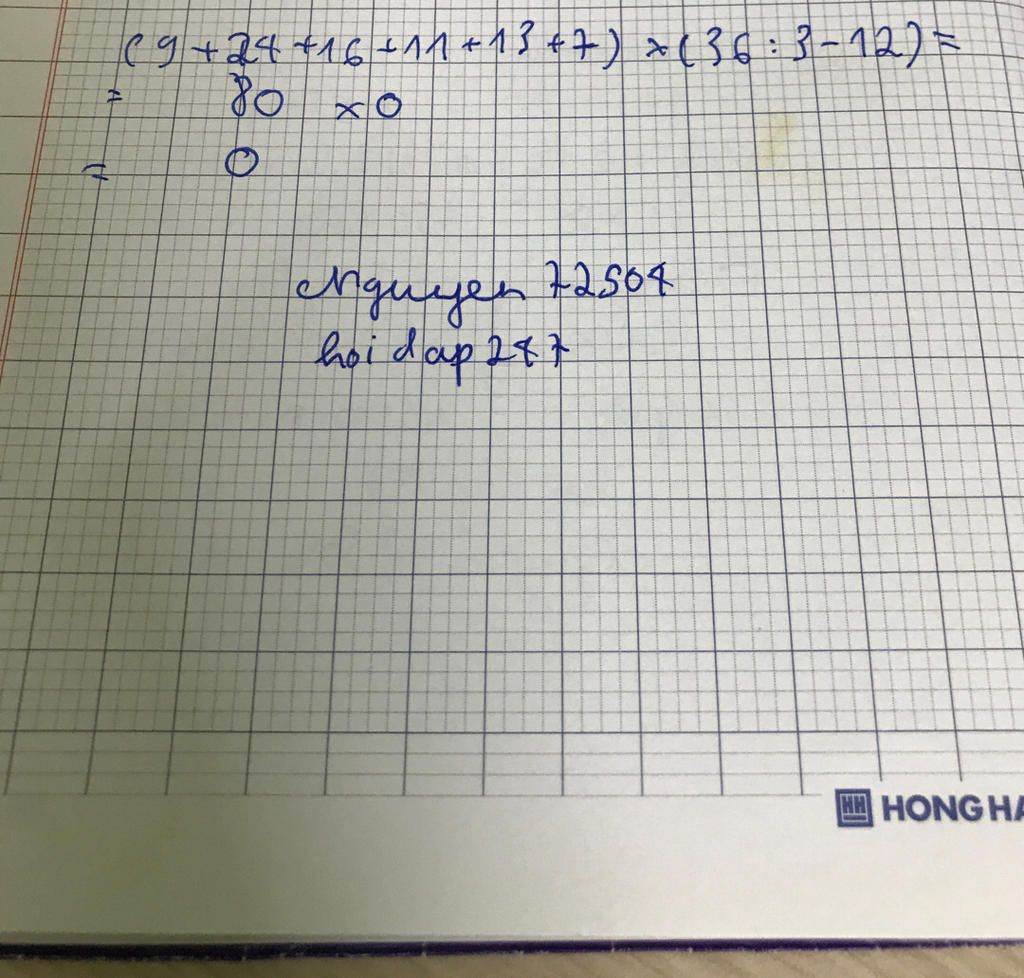 (9 + 24 + 16 + 11 + 13 + 7) × (36 : 3 - 12) =
= 80 × 0
= 0
Nguyen 72504
hoi dap 247
HONG HA